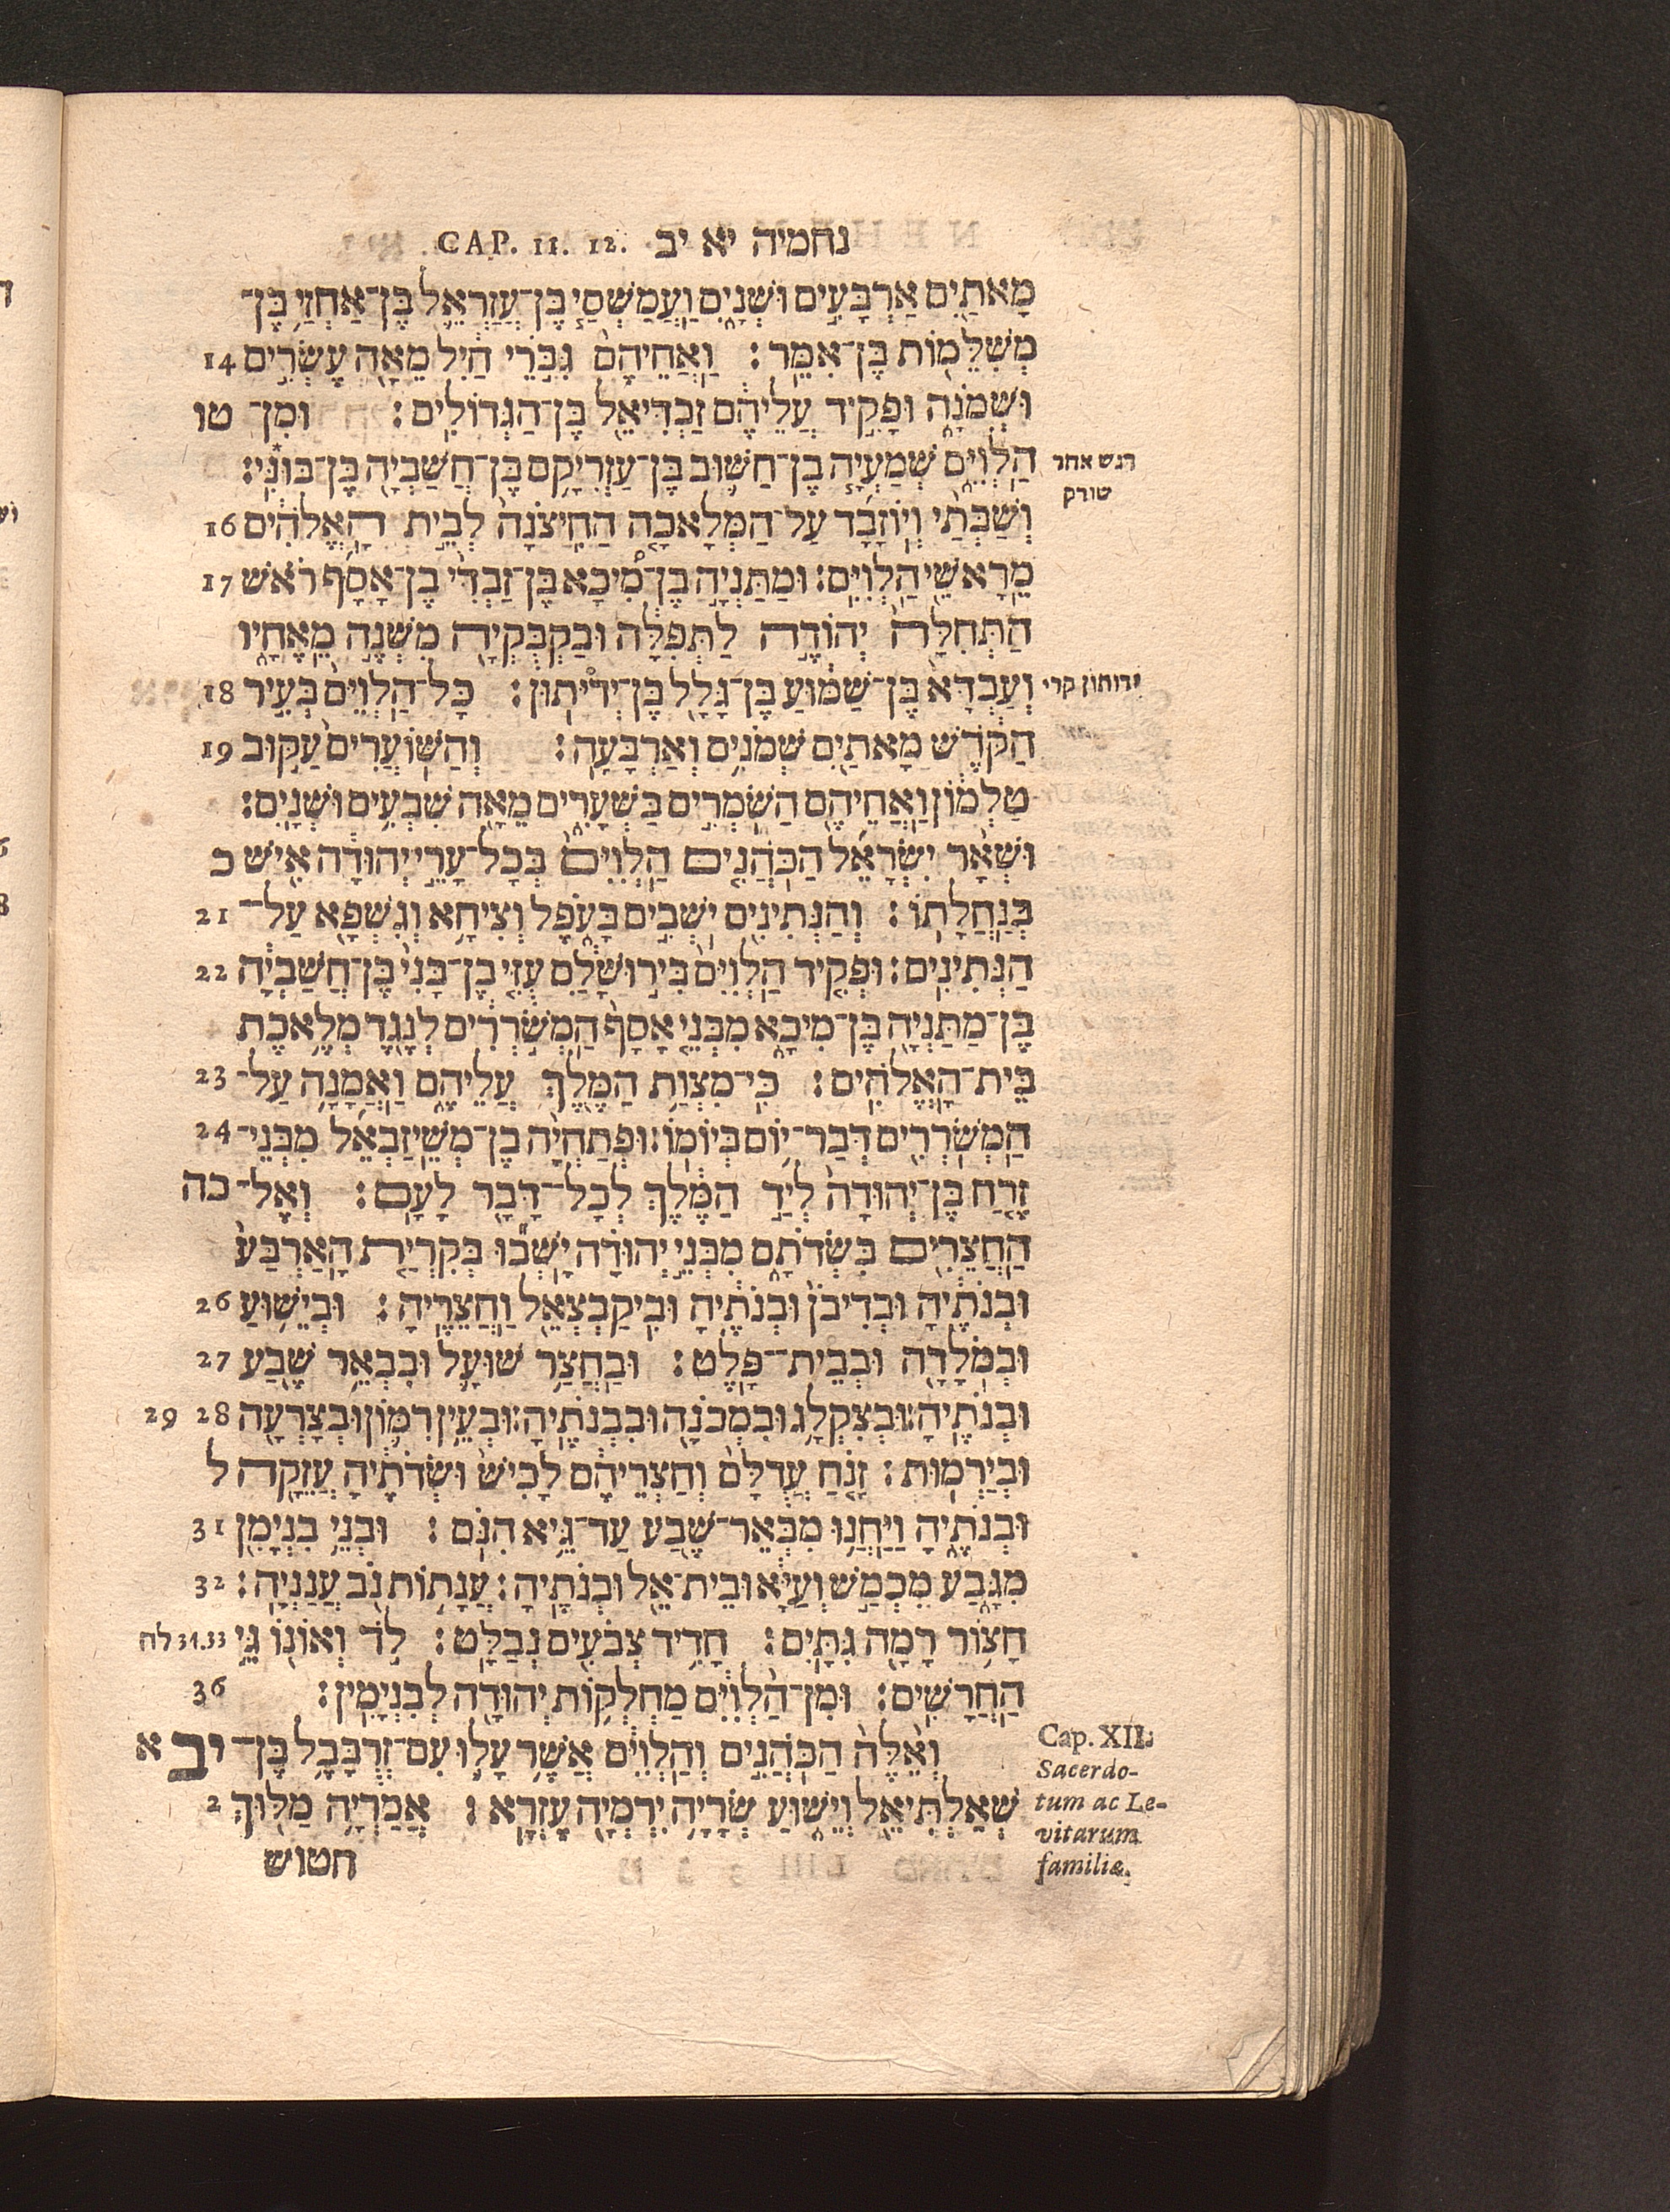 נחמיה יא יב CAP. 11. 12.
מָאתַ֖יִם אַרְבָּעִ֣ים וּשְׁנָ֑יִם וַעֲמַשְׁסַ֧י בֶּן־עֲזַרְאֵ֛ל בֶּן־אַחְזַ֥י בֶּן־
מְשִׁלֵּמ֖וֹת בֶּן־אִמֵּֽר׃ וַאֲחֵיהֶם֙ גִּבּ֣רֵי חַ֔יִל מֵאָ֖ה עֶשְׂרִ֣ים 14
וּשְׁמֹנָ֑ה וּפָקִ֣יד עֲלֵיהֶ֔ם זַבְדִּיאֵ֖ל בֶּן־הַגְּדוֹלִֽים׃ וּמִן־ טו
הַלְוִיִּ֑ם שְׁמַעְיָ֧ה בֶן־חַשּׁ֛וּב בֶּן־עַזְרִיקָ֥ם בֶּן־חֲשַׁבְיָ֖ה בֶּן־בּוּנִּֽי׃
דגש אחר
שורק
וְשַׁבְּתַ֨י וְיוֹזָבָ֜ד עַל־הַמְּלָאכָ֤ה הַחִֽיצֹנָה֙ לְבֵ֣ית הָאֱלֹהִ֔ים 16
מֵרָאשֵׁ֖י הַלְוִיִּֽם׃ וּמַתַּנְיָ֣ה בֶן־מִ֠יכָא בֶּן־זַבְדִּ֨י בֶן־אָסָ֜ף רֹ֗אשׁ 17
הַתְּחִלָּה֙ יְהוֹדֶ֣ה לַתְּפִלָּ֔ה וּבַקְבֻּקְיָ֖ה מִשְׁנֶ֣ה מֵאֶחָ֑יו
וְעַבְדָּא֙ בֶּן־שַׁמּ֔וּעַ בֶּן־גָּלָ֖ל בֶּן־יְדיתֽוּן׃ כָּל־הַלְוִיִּם֙ בְּעִ֣יר 18
ידותון קרי
הַקֹּ֔דֶשׁ מָאתַ֖יִם שְׁמֹנִ֥ים וְאַרְבָּעָֽה׃ וְהַשּׁוֹעֲרִים֙ עַקּ֣וּב 19
טַלְמ֔וֹן וַאֲחֵיהֶ֖ם הַשֹּׁמְרִ֣ים בַּשְּׁעָרִ֑ים מֵאָ֖ה שִׁבְעִ֥ים וּשְׁנָֽיִם׃
וּשְׁאָ֨ר יִשְׂרָאֵ֜ל הַכֹּהֲנִ֤ים הַלְוִיִּם֙ בְּכָל־עָרֵ֣י יְהוּדָ֔ה אִ֖ישׁ כ
בְּנַחֲלָתֽוֹ׃ וְהַנְּתִינִ֖ים יֹשְׁבִ֣ים בָּעֹ֑פֶל וְצִיחָ֥א וְגִשְׁפָּ֖א עַל־ 21
הַנְּתִינִֽים׃ וּפְקִ֤יד הַלְוִיִּם֙ בִּיר֣וּשָׁלִַ֔ם עֻזִּ֤י בֶן־בָּנִי֙ בֶּן־חֲשַׁבְיָ֔ה 22
בֶּן־מַתַּנְיָ֖ה בֶּן־מִיכָ֑א מִבְּנֵ֤י אָסָף֙ הַמְשֹׁ֣רְרִ֔ים לְנֶ֖גֶד מְלֶ֥אכֶת
בֵּית־הָאֱלֹהִֽים׃ כִּי־מִצְוַ֥ת הַמֶּ֖לֶךְ עֲלֵיהֶ֑ם וַאֲמָנָ֥ה עַל־ 23
הַמְשֹׁרְרִ֖ים דְּבַר־י֥וֹם בְּיוֹמֽוֹ׃ וּפְתַחְיָ֨ה בֶּן־מְשֵֽׁיזַבְאֵ֜ל מִבְּנֵי־ 24
זֶ֤רַח בֶּן־יְהוּדָה֙ לְיַ֣ד הַמֶּ֔לֶךְ לְכָל־דָּבָ֖ר לָעָֽם׃ וְאֶל־ כה
הַחֲצֵרִ֖ים בִּשְׂדֹתָ֑ם מִבְּנֵ֣י יְהוּדָ֗ה יָשְׁב֞וּ בְּקִרְיַ֤ת הָאַרְבַּע֙
וּבְנֹתֶ֔יהָ וּבְדִיבֹן֙ וּבְנֹתֶ֔יהָ וּבִֽיקַבְצְאֵ֖ל וַחֲצֵרֶֽיהָ׃ וּבְיֵשׁ֥וּעַ 26
וּבְמוֹלָדָ֖ה וּבְבֵ֥ית־פָּֽלֶט׃ וּבַחֲצַ֥ר שׁוּעָ֛ל וּבִבְאֵ֥ר שֶׁ֖בַע 27
וּבְנֹתֶֽיהָ׃ וּבְצִקְלַ֥ג וּבִמְכֹנָ֖ה וּבִבְנֹתֶֽיהָ׃ וּבְעֵ֥ין רִמּ֛וֹן וּבְצָרְעָ֖ה 28 29
וּבְיַרְמֽוּת׃ זָנֹ֤חַ עֲדֻלָּם֙ וְחַצְרֵיהֶ֔ם לָכִישׁ֙ וּשְׂדֹתֶ֔יהָ עֲזֵקָ֖ה ל
וּבְנֹתֶ֑יהָ וַיַּחֲנ֥וּ מִבְּאֵֽר־שֶׁ֖בַע עַד־גֵּ֥יא הִנֹּֽם׃ וּבְנֵ֥י בִנְיָמִ֖ן 31
מִגָּ֑בַע מִכְמָ֣שׂ וְעַיָּ֔א וּבֵֽית־אֵ֖ל וּבְנֹתֶֽיהָ׃ עֲנָת֥וֹת נֹ֖ב עֲנַנְיָֽה׃ 32
חָצ֥וֹר רָמָ֖ה גִּתָּֽיִם׃ חָדִ֥יד צְבֹעִ֖ים נְבַלָּֽט׃ לֹ֥ד וְאוֹנ֖וֹ גֵּ֥י 34.33 לח
הַחֲרָשִֽׁים׃ וּמִן־הַ֨לְוִיִּ֔ם מַחְלְק֥וֹת יְהוּדָ֖ה לְבִנְיָמִֽין׃ 36
וְאֵ֙לֶּה֙ הַכֹּהֲנִ֣ים וְהַלְוִיִּ֔ם אֲשֶׁ֥ר עָל֛וּ עִם־זְרֻבָּבֶ֥ל בֶּן־ יב א
שְׁאַלְתִּיאֵ֖ל וְיֵשׁ֑וּעַ שְׂרָיָ֥ה יִרְמְיָ֖ה עֶזְרָֽא׃ אֲמַרְיָ֥ה מַלּ֖וּךְ 2
חטוש
Cap. XII.
Sacerdo-
tum ac Le-
vitarum
familiæ.